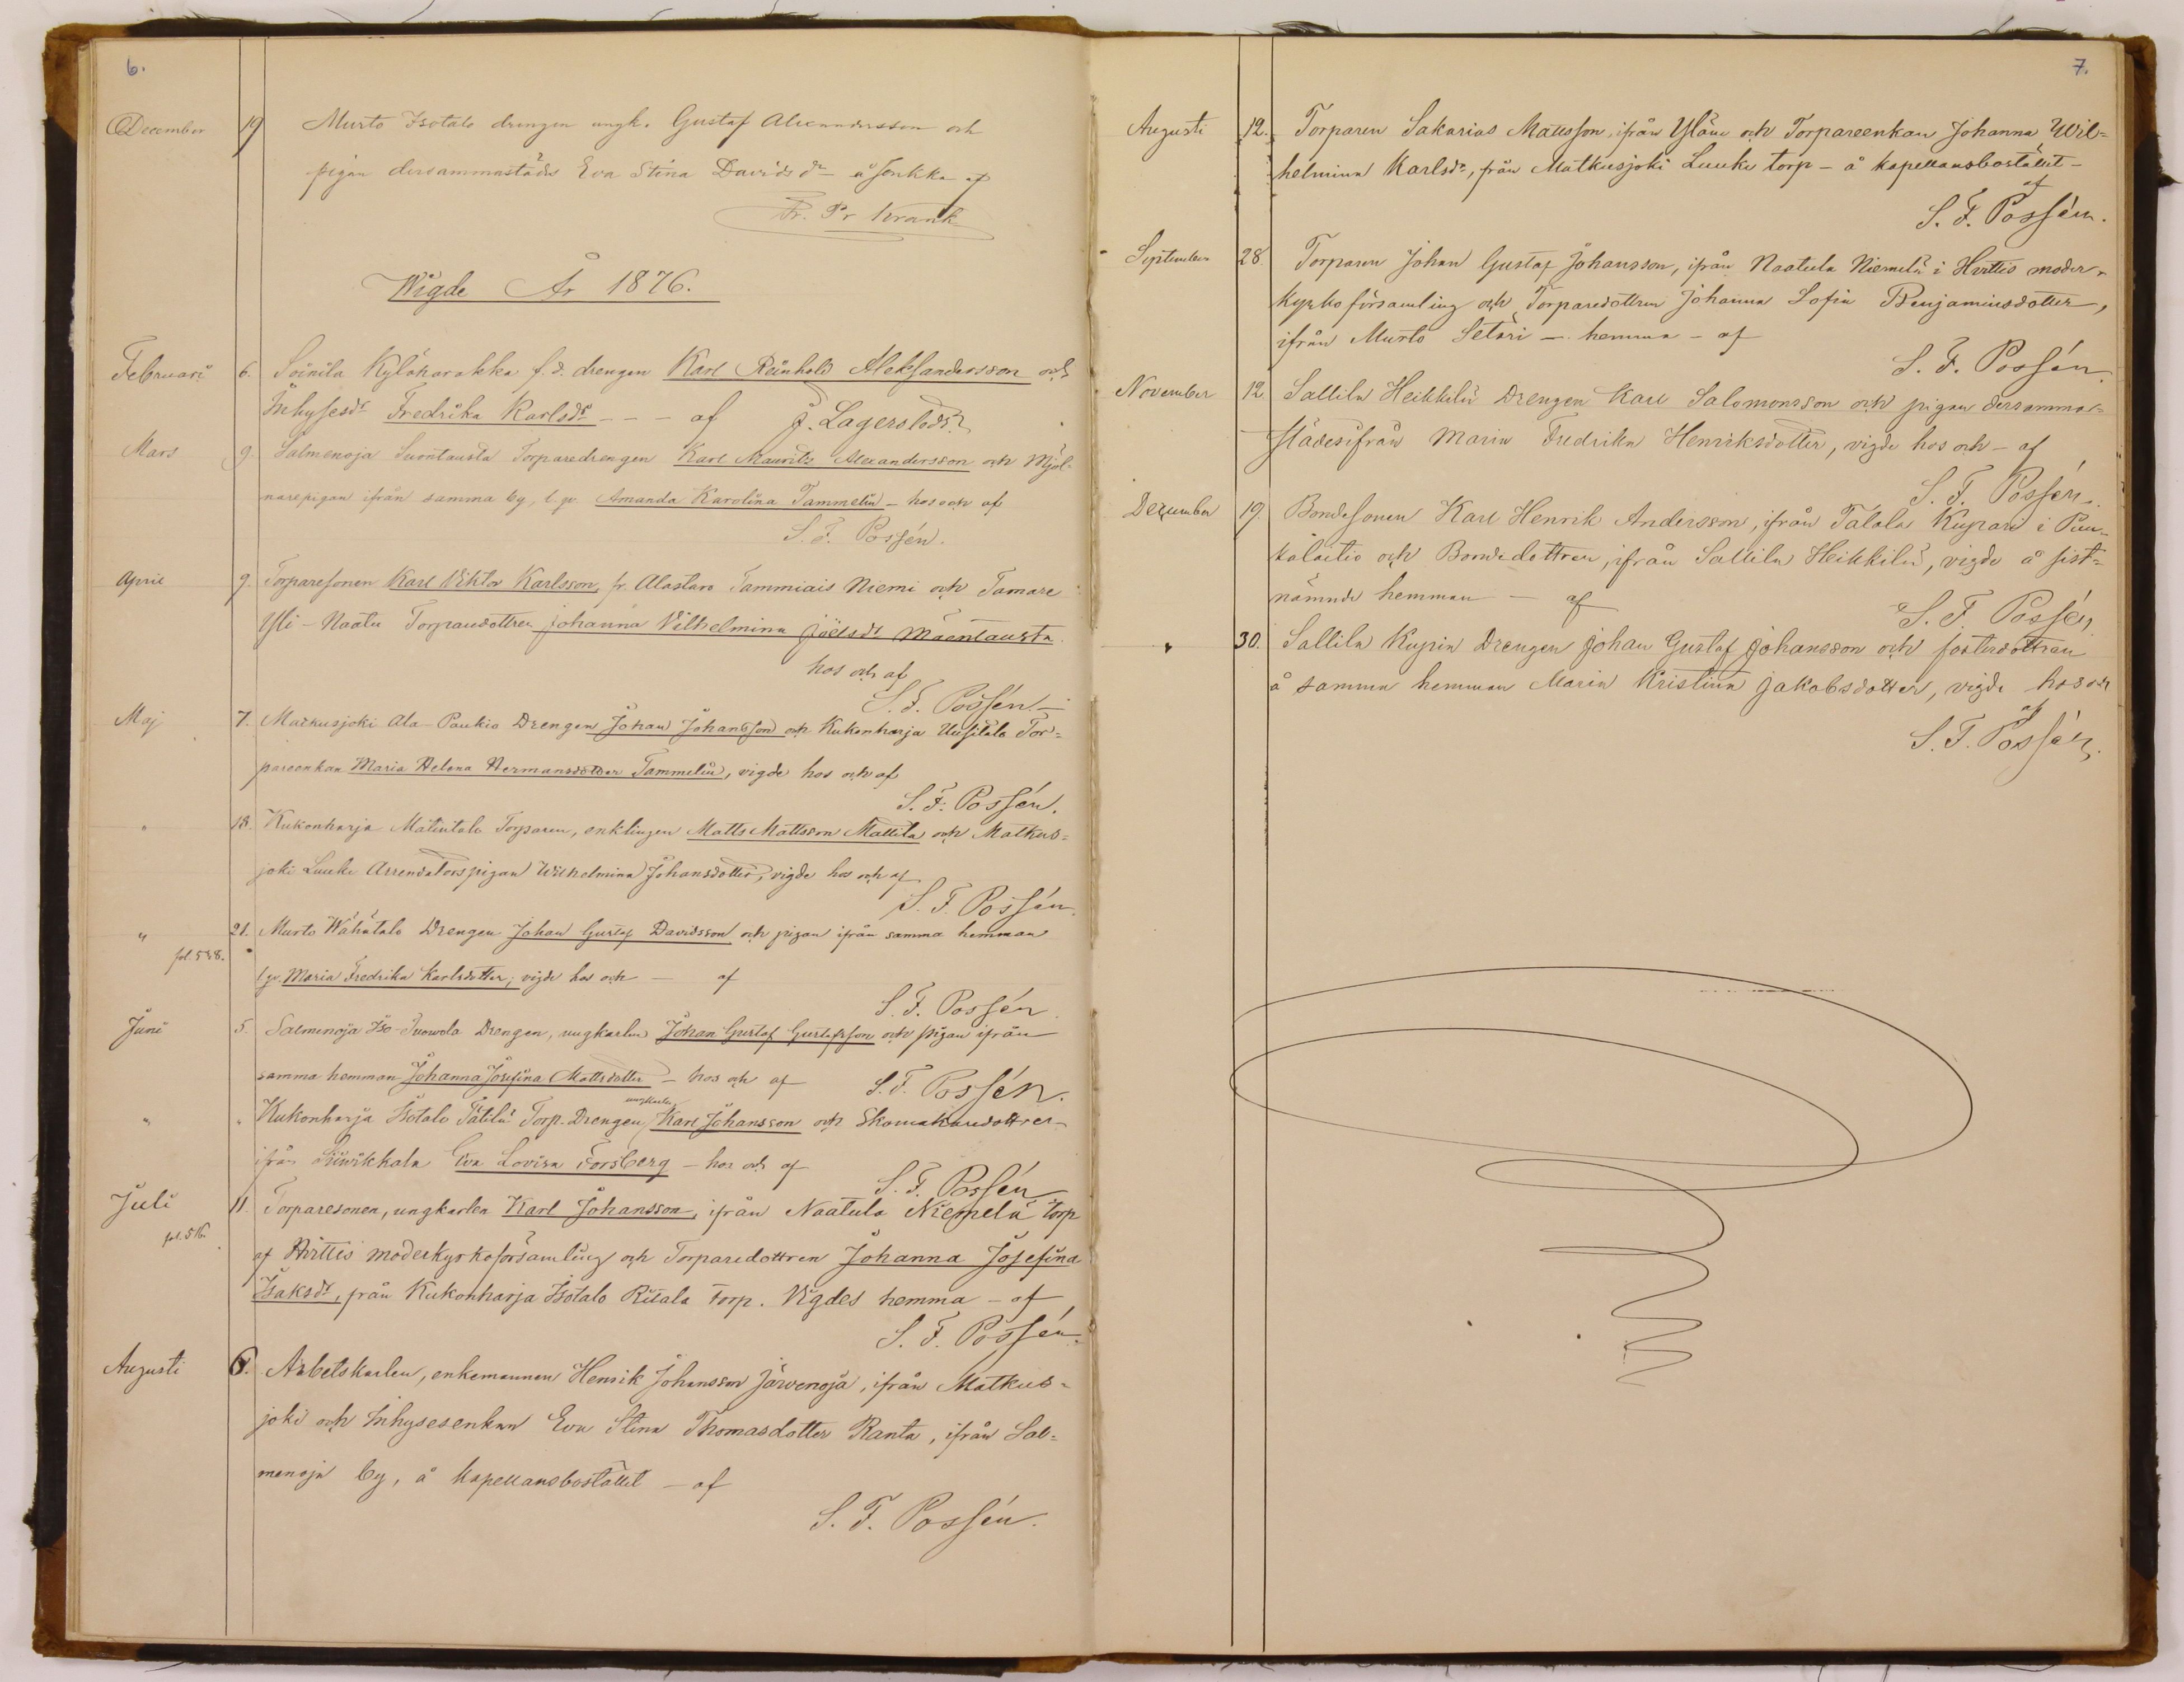 6.
December 19 Murto Isotalo drengen ungk. Gustaf Alexandersson och
pigan dersammastäds Eva Stina Davidsdr å Sonkka af
Fr. Pr Krank
Wigde År 1876.
Februari 6. Soinila Kyläkarakka f.d. drengen Karl Reinhold Aleksandersson och
Inhysesdr Fredrika Karlsdr - - - af J. Lagerstedt
Mars 9. Salmenoja Suontausta Torparedrengen Karl Mauritz Alexandersson och Mjöl-
narepigan ifrån samma by, t.pr. Amanda Karolina Tammelin - hos och af
S. F. Possén.
April 9. Torparesonen Karl Viktor Karlsson, fr. Alastaro Tammiais Niemi och Tamare
Yli-Naatu Torparedottren Johanna Vilhelmina Joelsdr Mäentausta
hos och af
S. F. Possén -
Maj 7. Matkusjoki Ala-Paukio Drengen Johan Johansson och Kukonharja Uusitalo Tor=
pareenkan Maria Helena Hermansdotter Tammelin, vigde hos och af
S. F. Possén.
" 18. Kukonharja Mälintalo Torparen, enklingen Matts Mattsson Mattila och Matkus=
joki Luuki Arrendatorspigan Wilhelmina Johansdotter, vigde hos och af
S. F. Possén.
" 21. Murto Wähätalo Drengen Johan Gustaf Davidsson och pigan ifrån samma hemman
fol. 538.
t.pr. Maria Fredrika Karlsdotter; vigde hos och - af
S. F. Possén
Juni 5. Salmenoja Iso-Junnola Drengen, ungkarlen Johan Gustaf Gustafsson och pigan ifrån
samma hemman Johanna Josefina Mattsdotter - hos och af S. F. Possén.
ungkarlen
" " Kukonharja Isotalo Tätilä Torp. Drengen, Karl Johansson och Skomakaredottren
ifrån Siuvikkala Eva Lovisa Forsberg - hos och af
S. F. Possén
Juli 11. Torparesonen, ungkarlen Karl Johansson, ifrån Naatula Niemelä torp
fol. 516.
af Hvittis moderkyrkoförsamling och Torparedottren Johanna Josefina
Isaksdr, från Kukonharja Isotalo Ritala torp. Vigdes hemma - af
S. F. Possén.
Augusti 6. Arbetskarlen, enkemannen Henrik Johansson Järvenoja, ifrån Matkus=
joki och Inhysesenkan Eva Stina Thomasdotter Ranta, ifrån Sal=
menoja by, å kapellansbostället - af
S. F. Possén.
7.
Augusti 12. Torparen Sakarias Mattsson, ifrån Yläne och Torpareenkan Johanna Wil=
helmina Karlsdr, från Matkusjoki Luuki torp - å kapellansbostället -
af
S. F. Possén.
September 28. Torparen Johan Gustaf Johansson, ifrån Naatula Niemelä i Hvittis moder-
kyrkoförsamling och Torparedottren Johanna Sofia Benjaminsdotter,
ifrån Murto Setäri - hemma - af
S. F. Possén.
November 12. Sallila Heikkilä Drengen Karl Salomonsson och pigan dersamma=
städesifrån Maria Fredrika Henriksdotter, vigde hos och - af
S. F. Possén.
December 19. Bondesonen Karl Henrik Andersson, ifrån Talala Kupari i Pun=
kalaitio och Bondedottren, ifrån Sallila Heikkilä, vigde å sist=
nämnde hemman - af
S. F. Possén
" 30. Sallila Kupia Drengen Johan Gustaf Johansson och fosterdottren
å samma hemman Maria Kristina Jakobsdotter, vigde hos och
af
S. F. Possén.